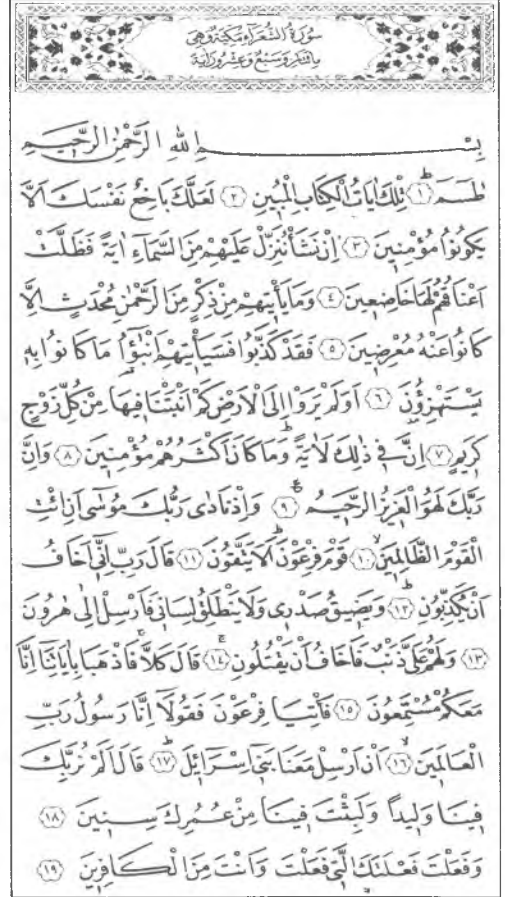 سُورَةُ الشُّعَرَاءِ مَكِّيَّةٌ وَهِيَ
مِائَتَانِ وَسَبْعٌ وَعِشْرُونَ اٰيَةً
بِسْمِ اللّٰهِ الرَّحْمٰنِ الرَّحِيمِ
طٰسٓمٓ ﴿١﴾ تِلْكَ اٰيَاتُ الْكِتَابِ الْمُبِينِ ﴿٢﴾ لَعَلَّكَ بَاخِعٌ نَفْسَكَ اَلَّا
يَكُونُوا مُؤْمِنِينَ ﴿٣﴾ اِنْ نَشَأْ نُنَزِّلْ عَلَيْهِمْ مِنَ السَّمَٓاءِ اٰيَةً فَظَلَّتْ
اَعْنَاقُهُمْ لَهَا خَاضِعِينَ ﴿٤﴾ وَمَا يَأْتِيهِمْ مِنْ ذِكْرٍ مِنَ الرَّحْمٰنِ مُحْدَثٍ اِلَّا
كَانُوا عَنْهُ مُعْرِضِينَ ﴿٥﴾ فَقَدْ كَذَّبُوا فَسَيَأْتِيهِمْ اَنْبٰٓؤُا مَا كَانُوا بِهِ
يَسْتَهْزِؤُنَ ﴿٦﴾ اَوَلَمْ يَرَوْا اِلَى الْاَرْضِ كَمْ اَنْبَتْنَا فِيهَا مِنْ كُلِّ زَوْجٍ
كَرِيمٍ ﴿٧﴾ اِنَّ فِي ذٰلِكَ لَاٰيَةً وَمَا كَانَ اَكْثَرُهُمْ مُؤْمِنِينَ ﴿٨﴾ وَاِنَّ
رَبَّكَ لَهُوَ الْعَزِيزُ الرَّحِيمُ ﴿٩﴾ وَاِذْ نَادٰى رَبُّكَ مُوسٰٓى اَنِ ائْتِ
الْقَوْمَ الظَّالِمِينَ ﴿١٠﴾ قَوْمَ فِرْعَوْنَ اَلَا يَتَّقُونَ ﴿١١﴾ قَالَ رَبِّ اِنِّٓي اَخَافُ
اَنْ يُكَذِّبُونِ ﴿١٢﴾ وَيَضِيقُ صَدْرِي وَلَا يَنْطَلِقُ لِسَانِي فَاَرْسِلْ اِلٰى هٰرُونَ
﴿١٣﴾ وَلَهُمْ عَلَيَّ ذَنْبٌ فَاَخَافُ اَنْ يَقْتُلُونِ ﴿١٤﴾ قَالَ كَلَّا فَاذْهَبَا بِاٰيَاتِنَٓا اِنَّا
مَعَكُمْ مُسْتَمِعُونَ ﴿١٥﴾ فَأْتِيَا فِرْعَوْنَ فَقُولَٓا اِنَّا رَسُولُ رَبِّ
الْعَالَمِينَ ﴿١٦﴾ اَنْ اَرْسِلْ مَعَنَا بَنِٓي اِسْرَٓائِلَ ﴿١٧﴾ قَالَ اَلَمْ نُرَبِّكَ
فِينَا وَلِيدًا وَلَبِثْتَ فِينَا مِنْ عُمُرِكَ سِنِينَ ﴿١٨﴾
وَفَعَلْتَ فَعْلَتَكَ الَّتِي فَعَلْتَ وَاَنْتَ مِنَ الْكَافِرِينَ ﴿١٩﴾